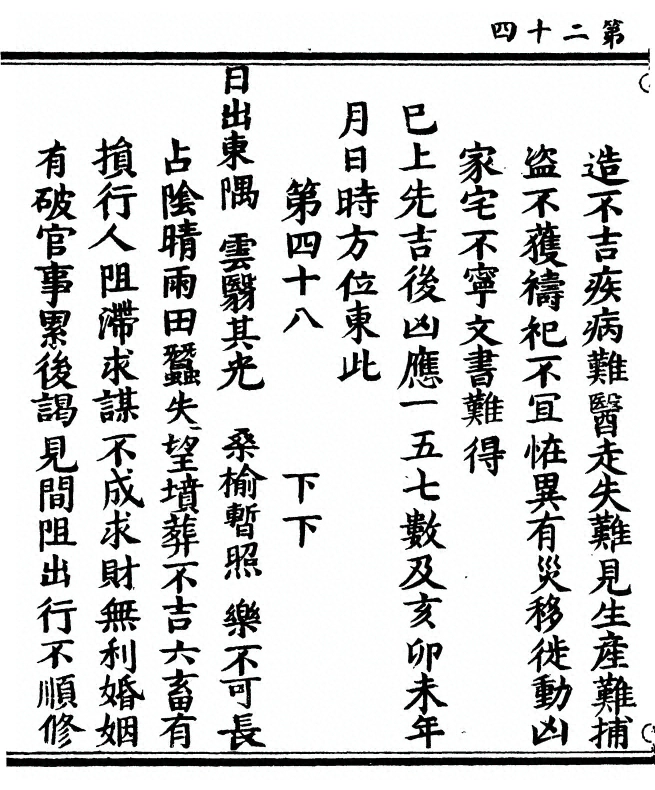 第二十四
造不吉疾病難醫走失難見生産難捕
盜不獲禱祀不冝恠異有災移徙動凶
家宅不寧文書難得
巳上先吉後凶應一五七數及亥卯未年
月日時方位東此
第四十八 下下
日出東隅 雲翳其光 桑榆暫照 樂不可長
占陰晴雨田蠶失望墳葬不吉六畜有
損行人阻滯求謀不成求財無利婚姻
有破官事累後謁見間阻出行不順修